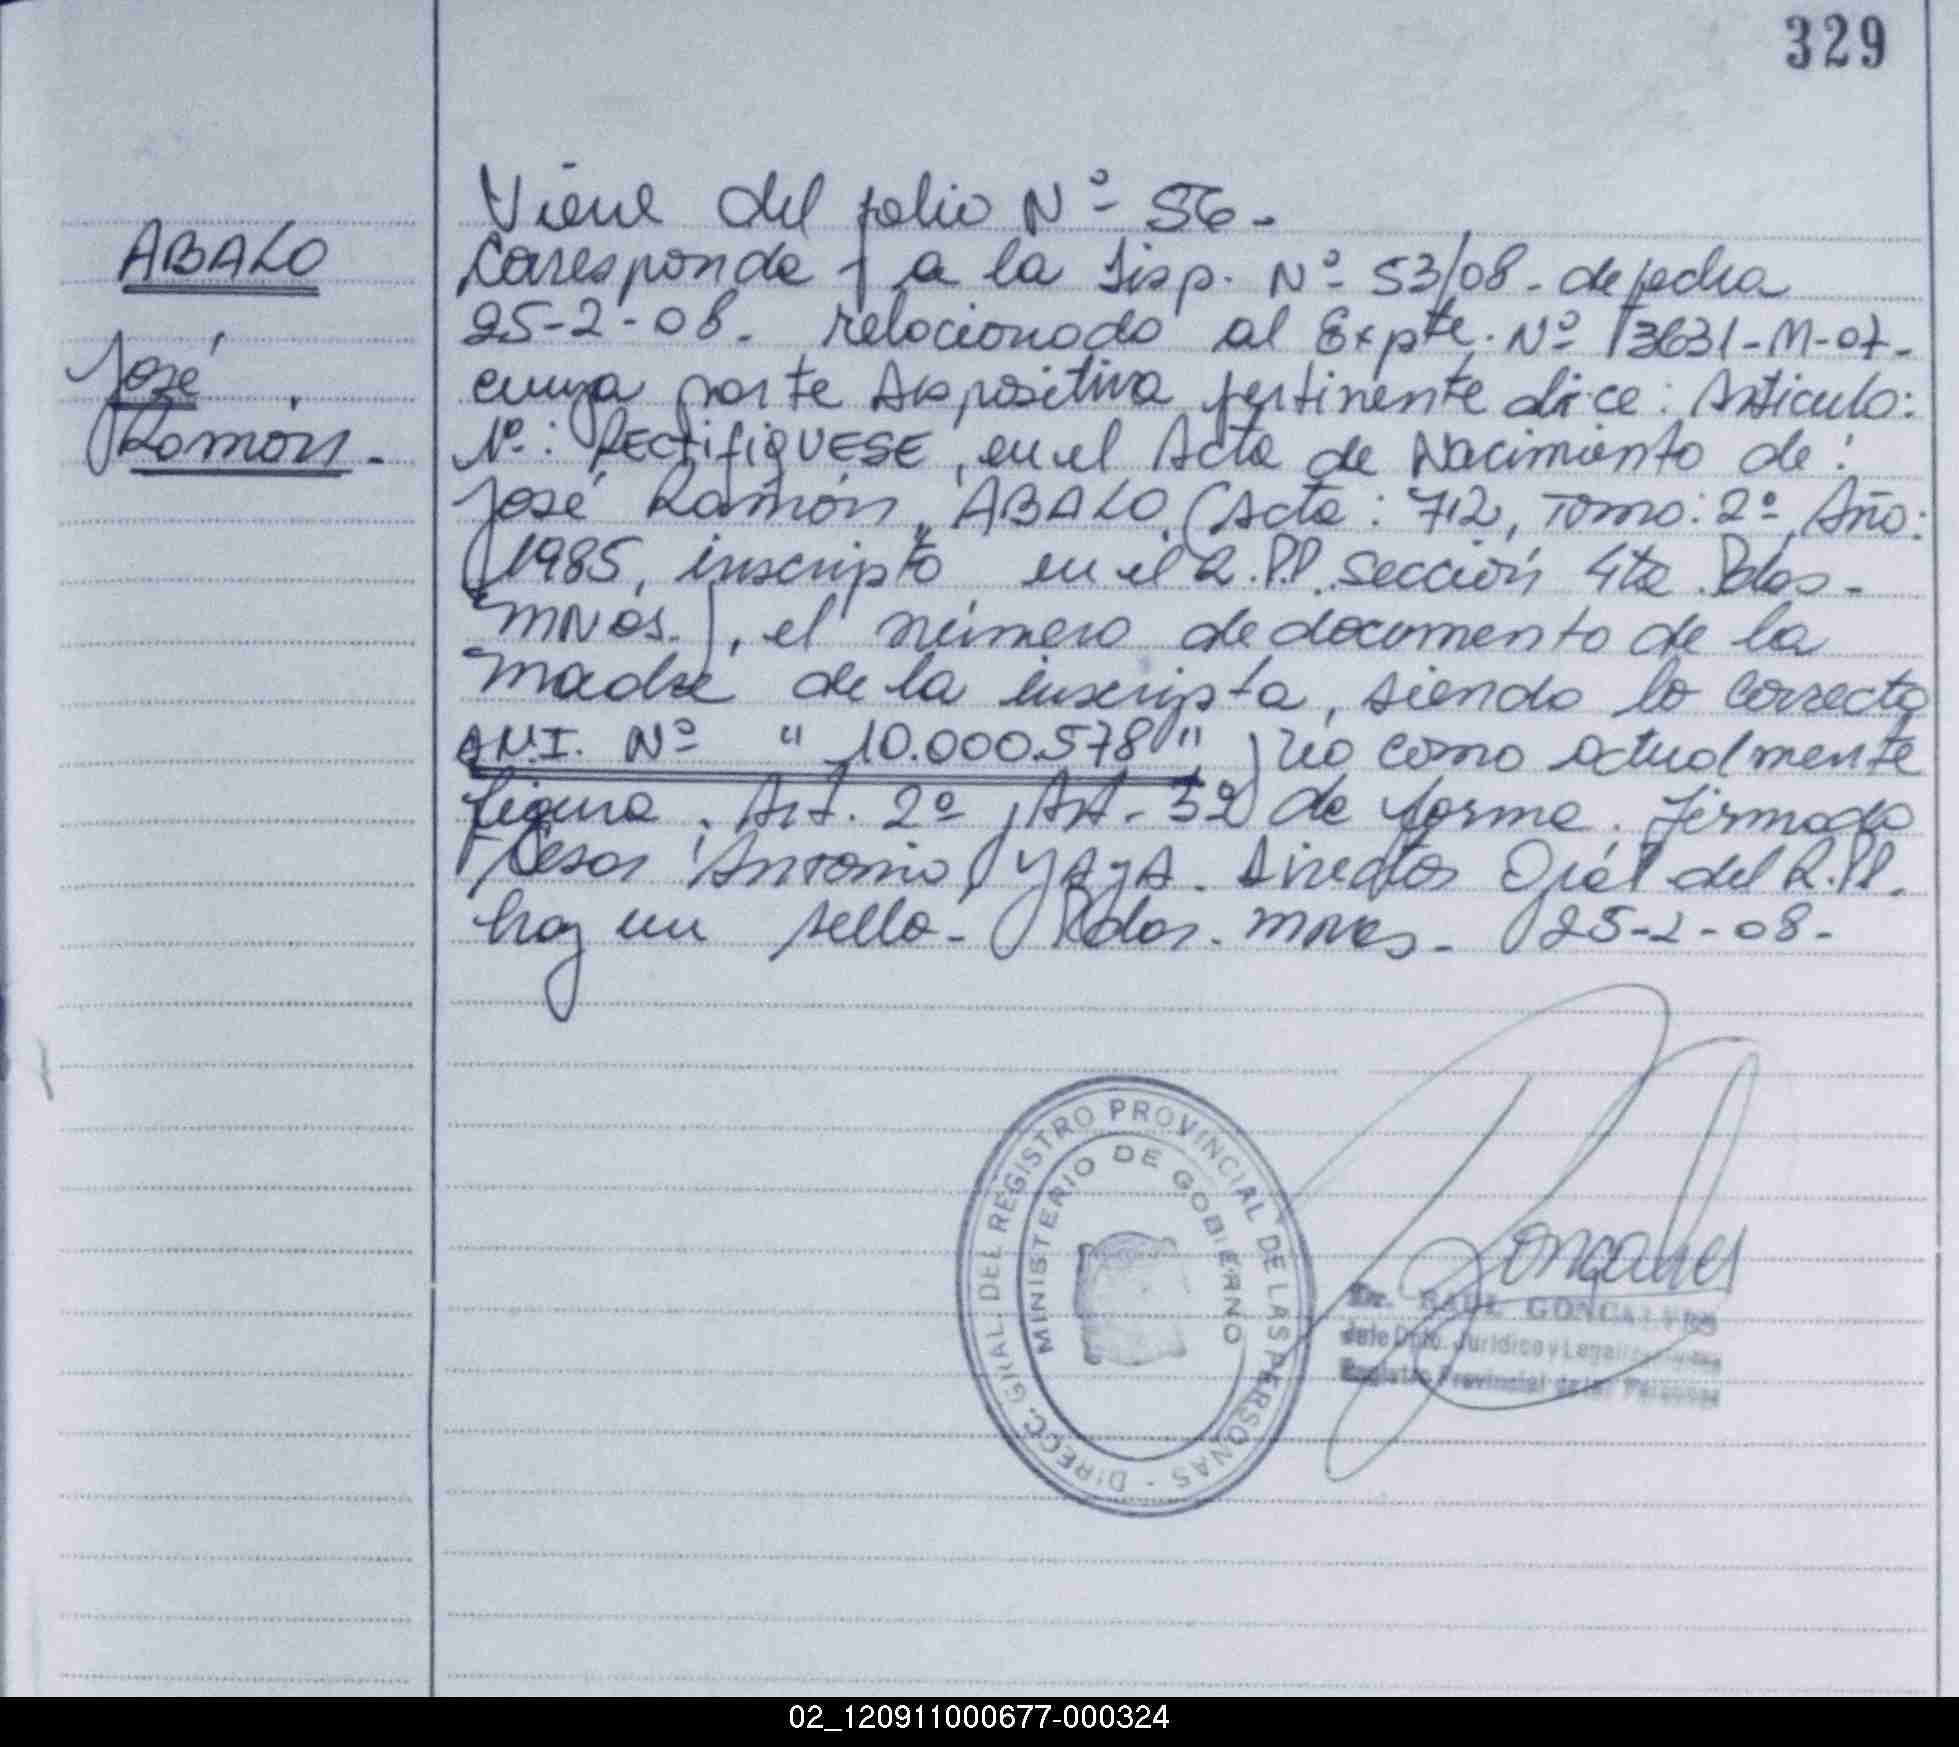 329
ABALO
José
Ramón.-
Viene del folio Nº- 56.-
Corresponde - a la Disp. Nº- 53/08- de fecha
25-2-08. relacionado al Expte. Nº 13631-M-07-
cuya parte dispositiva pertinente dice: Articulo:
1º: RECtifiQUESE, en el Acta de Nacimiento de:
José Ramón, ABALO, (Acta: 712, Tomo: 2º, Año:
1985, inscripto en el R.P.P. sección 4ta. Pdas-
MNAS.), el número de documento de la
Madre de la inscripta, siendo lo correcto
D.N.I. Nº "10.000.578", no como actualmente
figura. Art. 2º, Art- 3º) de forma. firmado
Cesar Antonio YAYA. Director Gral del R.P.P.
hay un sello- Pdas. Mnas- 25-2-08-
DIRECC. GRAL. DEL REGISTRO PROVINCIAL DE LAS PERSONAS -
MINISTERIO DE GOBIERNO
Goncalves
Dr. RAUL GONCALVES
Jefe Dpto. Jurídico y
Registro Provincial de las Personas
02_120911000677-000324